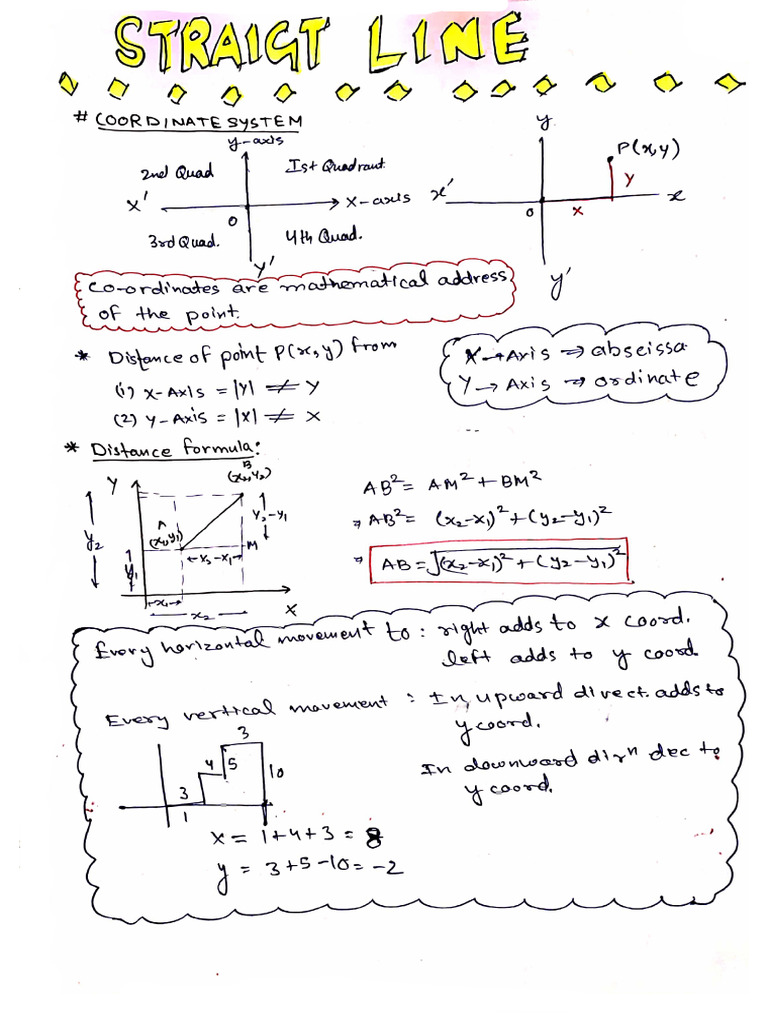 STRAIGT LINE
# COORDINATE SYSTEM
y-axis
2nd Quad
Ist Quadrant
X'
X-axis
O
3rd Quad.
4th Quad.
Y'
y
P(x,y)
Y
x'
x
O
X
y'
Co-ordinates are mathematical address
of the point.
* Distance of point P(x,y) from
(1) X-Axis = |Y| ≠ Y
(2) Y-Axis = |X| ≠ X
X → Axis ⇒ abseissa
Y → Axis ⇒ ordinate
* Distance formula:
Y
B
(x₂,y₂)
A
(x₁,y₁)
Y₂-y₁
y₂
x₂-x₁
M
y₁
x₁
x₂
X
AB² = AM² + BM²
⇒ AB² = (x₂-x₁)² + (y₂-y₁)²
⇒ AB = √(x₂-x₁)² + (y₂-y₁)²
Every horizontal movement to : right adds to x coord.
left adds to y coord
Every vertical movement : In upward direct. adds to
y coord.
In downward dirⁿ dec to
y coord.
3
4
5
10
3
1
x = 1+4+3 = 8
y = 3+5-10 = -2